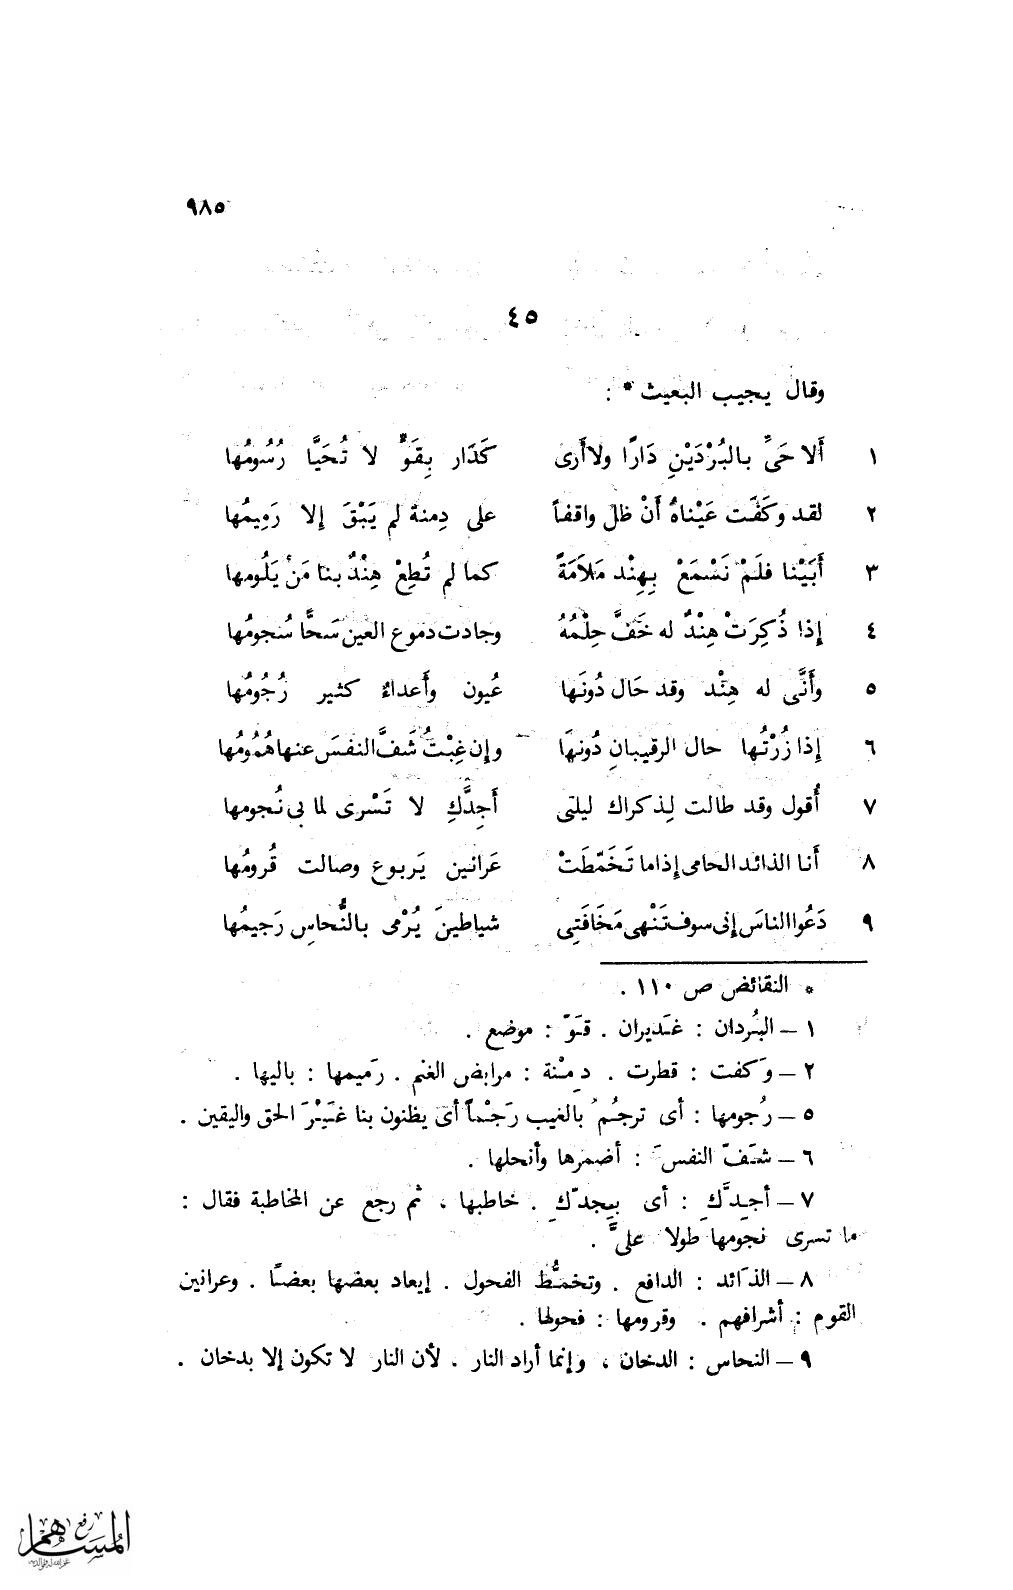 ٩٨٥
٤٥
وقال يجيب البعيث * :
١ أَلا حَىِّ بالبُرْدَيْنِ دَارًا ولا أَرى كَدَار بِقَوٍّ لا تُحَيَّا رُسُومُها
٢ لقد وكَفَت عَيْناهُ أَنْ ظل واقفاً على دِمنة لم يَبْقَ إلا رَمِيمُها
٣ أَبَيْنا فلَمْ نَسْمَعْ بِهِنْد مَلاَمَةً كما لم تُطِعْ هِنْدٌ بنا مَنْ يَلُومها
٤ إذا ذُكِرَتْ هِنْدٌ له خَفَّ حِلْمُهُ وجادت دموع العين سَحًّا سُجومُها
٥ وأَنَّى له هِنْد وقد حَال دُونَها عُيون وأَعداءٌ كثير رُجُومُها
٦ إذا زُرْتُها حال الرقيبانِ دُونهَا وإن غِبْتُ شَفَّ النفسَ عنها هُمُومُها
٧ أُقول وقد طالت لِذكراك ليلتى أَجِدَّكِ لا تَسْرى لما بى نُجومها
٨ أَنا الذائد الحامى إذا ما تَخَمَّطَتْ عَرانين يَربوع وصالت قُرومُها
٩ دَعُوا الناسَ إنى سوف تَنْهى مَخَافَتِى شياطينَ يُرْمى بالنُّحاسِ رَجيمُها
* النقائض ص ١١٠ .
١ – البُردان : غَديران . قَوّ : موضع .
٢ – وَكفت : قطرت . دِمْنة : مرابض الغنم . رَميمها : باليها .
٥ – رُجومها : أى ترجُمُ بالغيب رَجْماً أى يظنون بنا غَيْرَ الحق واليقين .
٦ – شَفّ النفسَ : أضمرها وأنحلها .
٧ – أجِدَّكِ : أى بِجدّكِ . خاطبها ، ثم رجع عن المخاطبة فقال :
ما تسرى نجومها طولا علىَّ .
٨ – الذائد : الدافع . وتخمُّط الفحول . إيعاد بعضها بعضًا . وعرانين
القوم : أشرافهم . وقرومها : فحولها .
٩ – النحاس : الدخان ، وإنما أراد النار . لأن النار لا تكون إلا بدخان .
رفع
المساهم